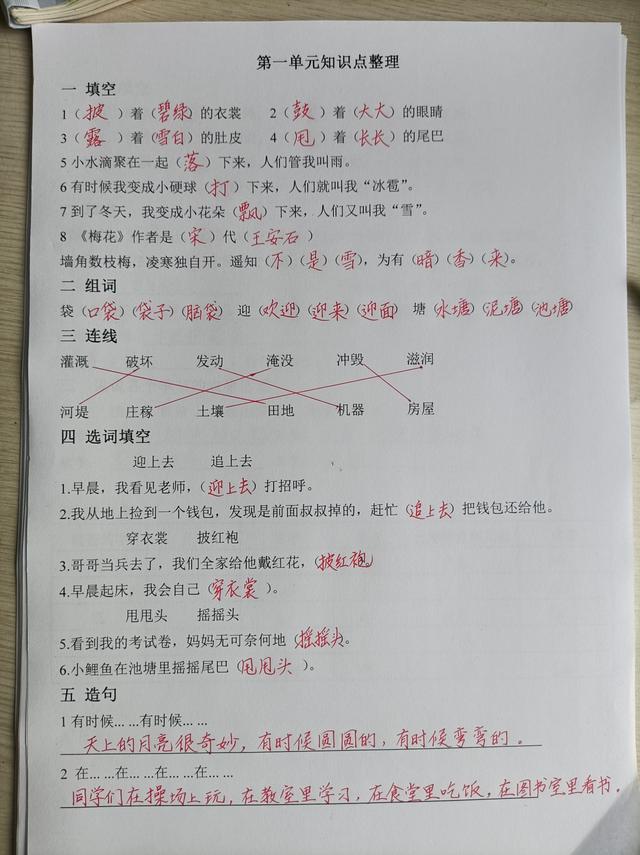 第一单元知识点整理
一 填空
1（披）着（碧绿）的衣裳 2（鼓）着（大大）的眼睛
3（露）着（雪白）的肚皮 4（甩）着（长长）的尾巴
5 小水滴聚在一起（落）下来，人们管我叫雨。
6 有时候我变成小硬球（打）下来，人们就叫我“冰雹”。
7 到了冬天，我变成小花朵（飘）下来，人们又叫我“雪”。
8 《梅花》作者是（宋）代（王安石）
墙角数枝梅，凌寒独自开。遥知（不）（是）（雪），为有（暗）（香）（来）。
二 组词
袋（口袋）（袋子）（脑袋） 迎（欢迎）（迎来）（迎面） 塘（水塘）（泥塘）（池塘）
三 连线
灌溉 破坏 发动 淹没 冲毁 滋润
河堤 庄稼 土壤 田地 机器 房屋
四 选词填空
迎上去 追上去
1.早晨，我看见老师，（迎上去）打招呼。
2.我从地上捡到一个钱包，发现是前面叔叔掉的，赶忙（追上去）把钱包还给他。
穿衣裳 披红袍
3.哥哥当兵去了，我们全家给他戴红花，（披红袍）
4.早晨起床，我会自己（穿衣裳）。
甩甩头 摇摇头
5.看到我的考试卷，妈妈无可奈何地（摇摇头）。
6.小鲤鱼在池塘里摇摇尾巴（甩甩头）。
五 造句
1 有时候... ...有时候... ...
天上的月亮很奇妙，有时候圆圆的，有时候弯弯的。
2 在... ...在... ...在... ...在... ...
同学们在操场上玩，在教室里学习，在食堂里吃饭，在图书室里看书。